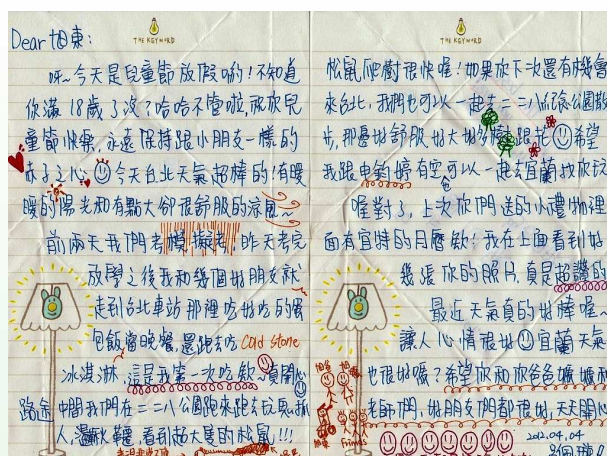 THE KEYWORD
Dear旭東：
呀~今天是兒童節放假喲！不知道
你滿18歲了沒？哈哈不管啦，祝你兒
童節快樂，永遠保持跟小朋友一樣的
赤子之心 今天台北天氣超棒的！有暖
暖的陽光和有點大卻很舒服的涼風~
前兩天我們考模擬考！昨天考完
放學之後我和幾個好朋友就
走到台北車站那裡吃好吃的
包飯當晚餐，還跑去吃Cold stone
冰淇淋，這是我第一次吃欸~真開心
路途中間我們在二二八公園跑來跑去玩鬼抓
人、盪鞦韆，看到超大隻的松鼠!!!
THE KEYWORD
松鼠爬樹很快喔！如果你下次還有機會
來台北，我們也可以一起去二二八紀念公園散
步，那邊好舒服好大好多樹跟花 希望
我跟申對婷有空可以一起去宜蘭找你玩
喔對了，上次你們送的小禮物裡
面有宜特的月曆欸！我在上面看到好
幾張你的照片，真是超讚的
最近天氣真的好棒喔~
讓人心情很好 宜蘭天氣
也很好嗎？希望你和你爸爸媽媽和
老師們，好朋友們都很好，天天開心
Friends
2012.04.04